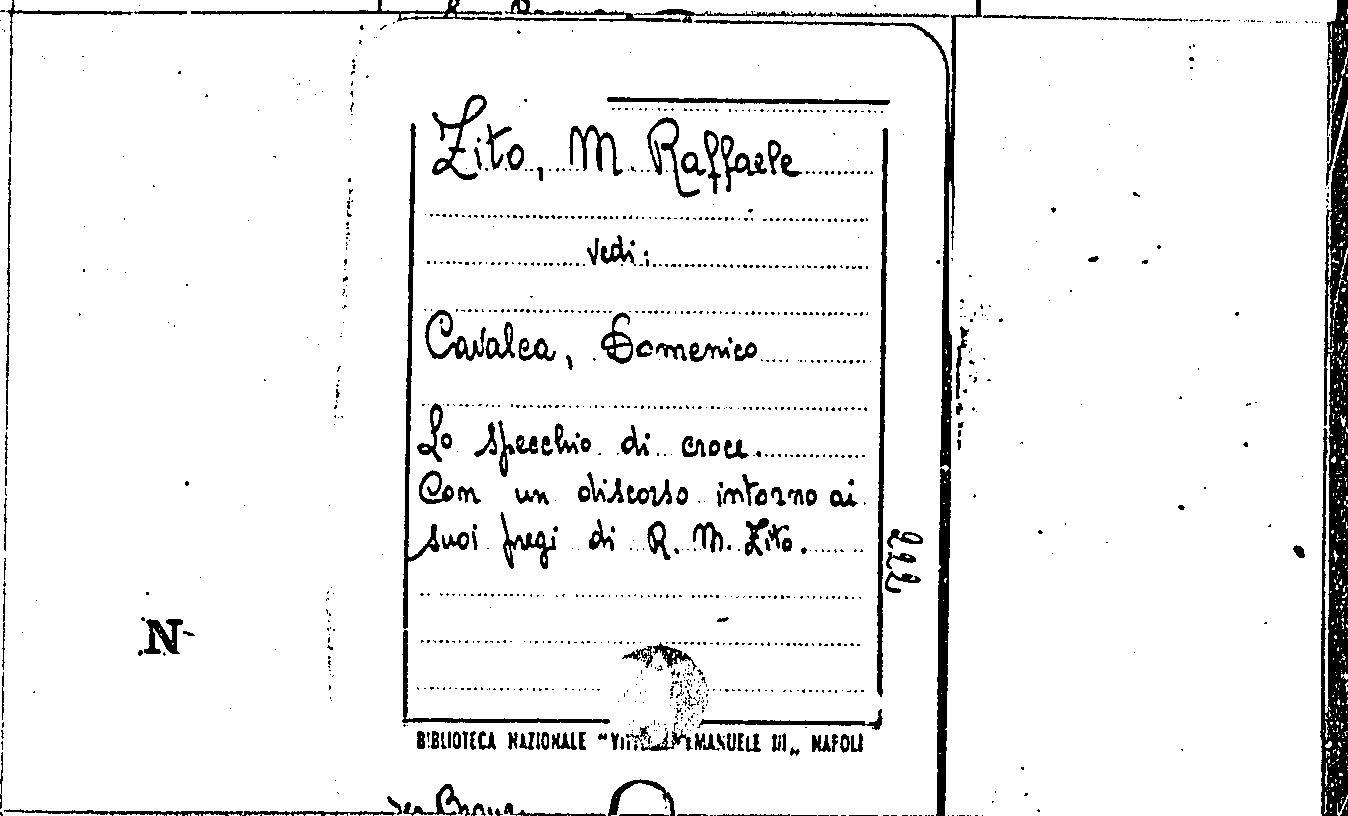 Zito, M. Raffaele
vedi:
Cavalca, Domenico
Lo specchio di croce.
Con un discorso intorno ai
suoi fregi di R. M. Zito.
222
N
BIBLIOTECA NAZIONALE "VITTORIO EMANUELE III" NAPOLI